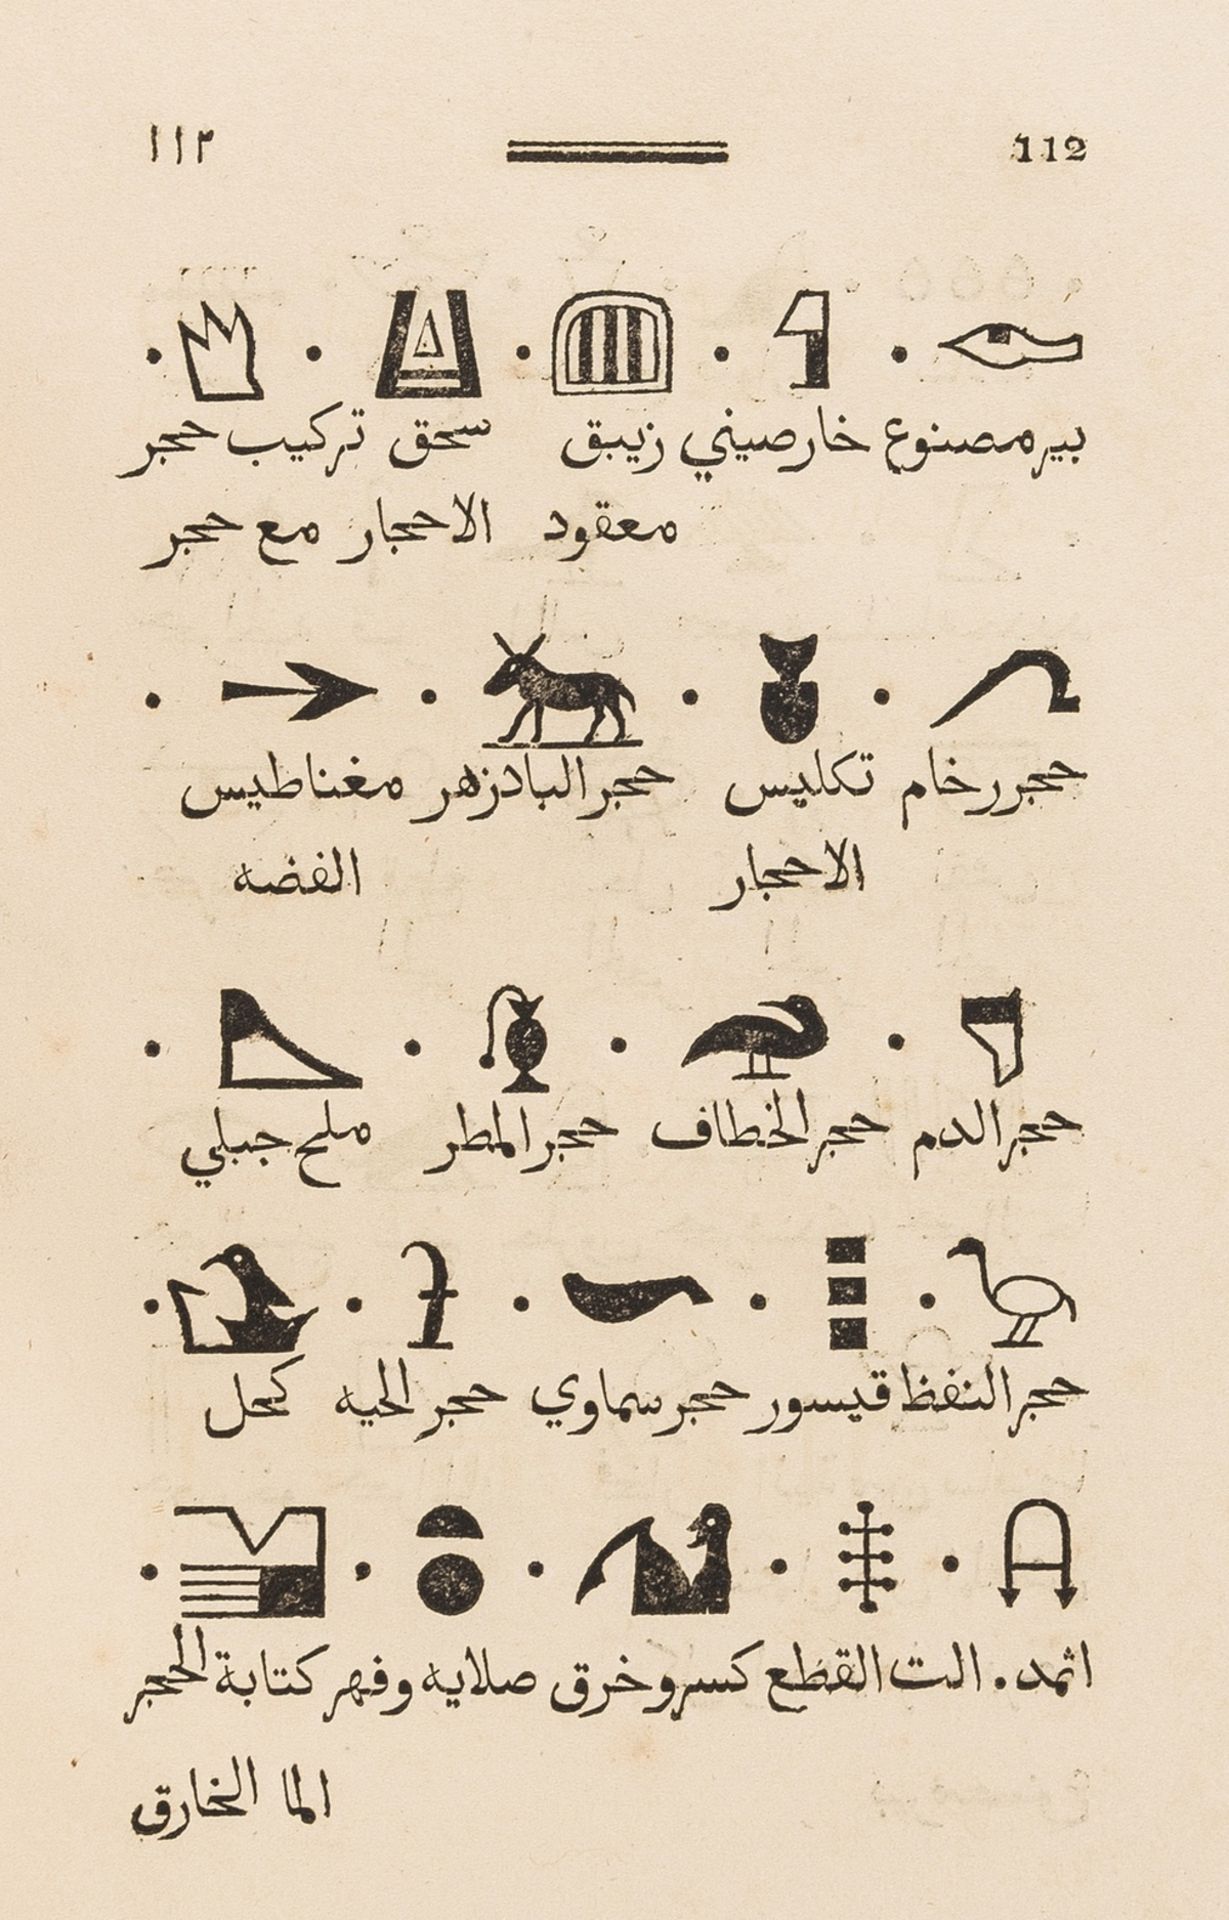 112 ١١٢
بير مصنوع خارصيني زيبق سحق تركيب حجر
معقود الاحجار مع حجر
حجر رخام تكليس حجر البادزهر مغناطيس
الاحجار الفضه
حجر الدم حجر الخطاف حجر المطر ملح جبلي
حجر النفظ قيسور حجر سماوي حجر الحيه كحل
اثمد . الت القطع كسر وخرق صلايه وفهر كتابة الحجر
الما الخارق